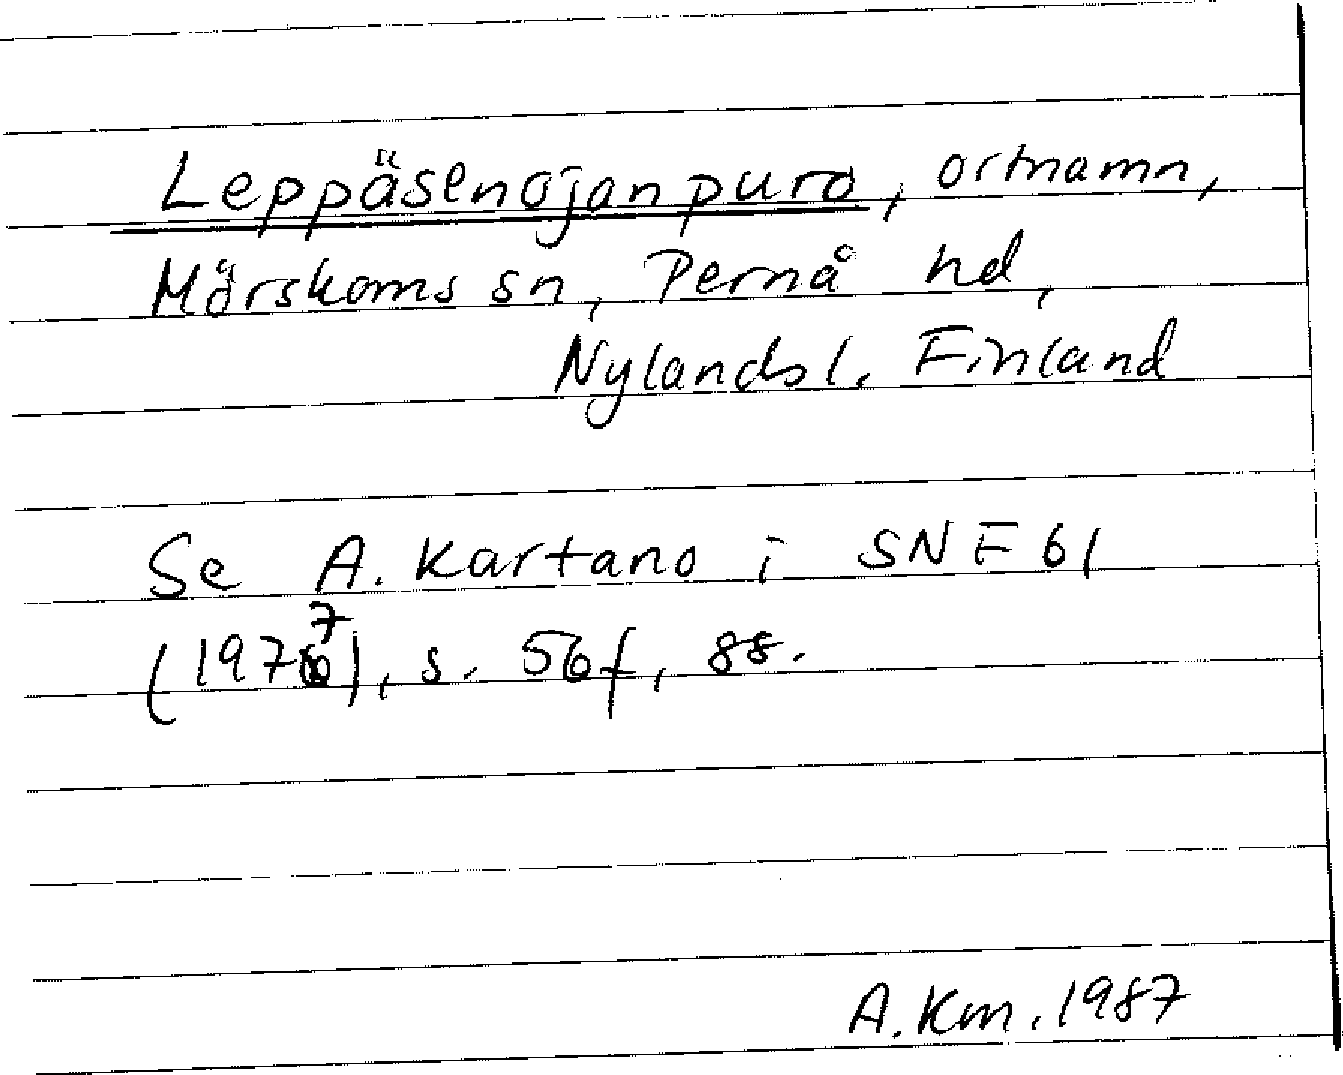 Leppäsenojanpuro, ortnamn,
Mörskoms sn, Pernå hd,
Nylandsl. Finland
Se A. Kartano i SNF 61
(1977), s. 56f, 88.
A.Km. 1987